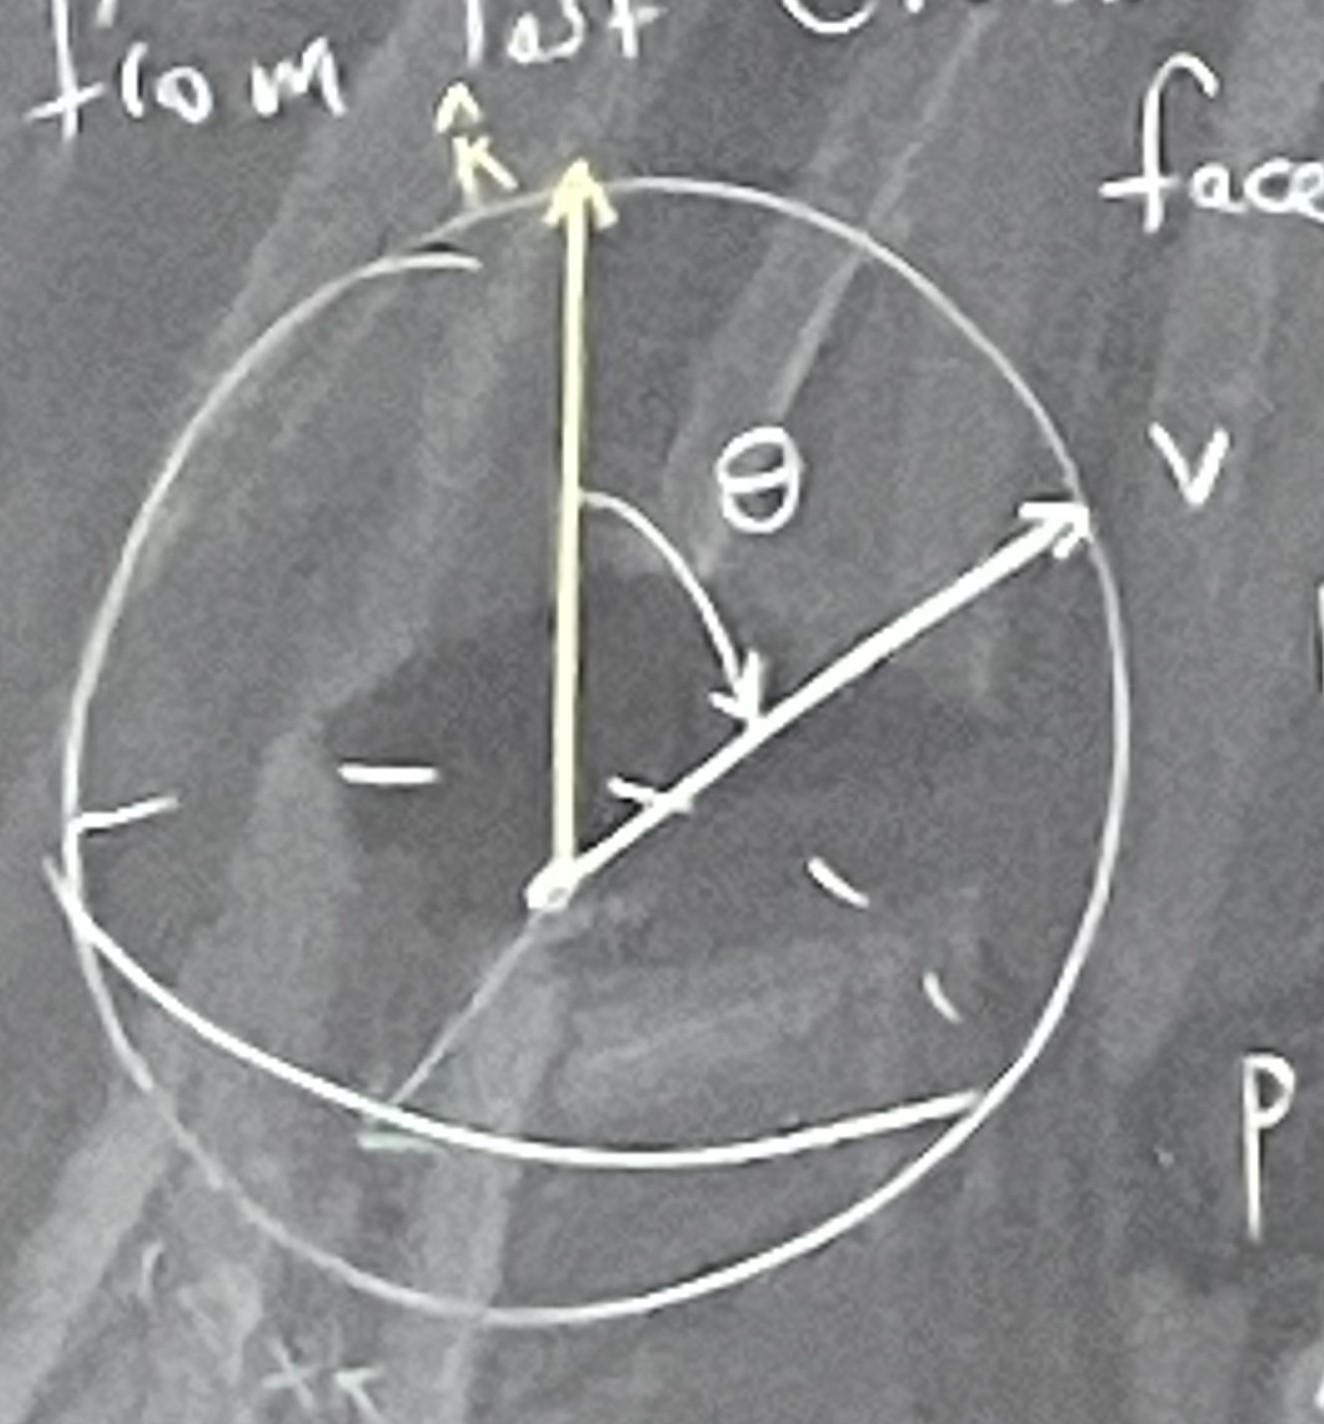 from last
k̂
face
θ
v
p